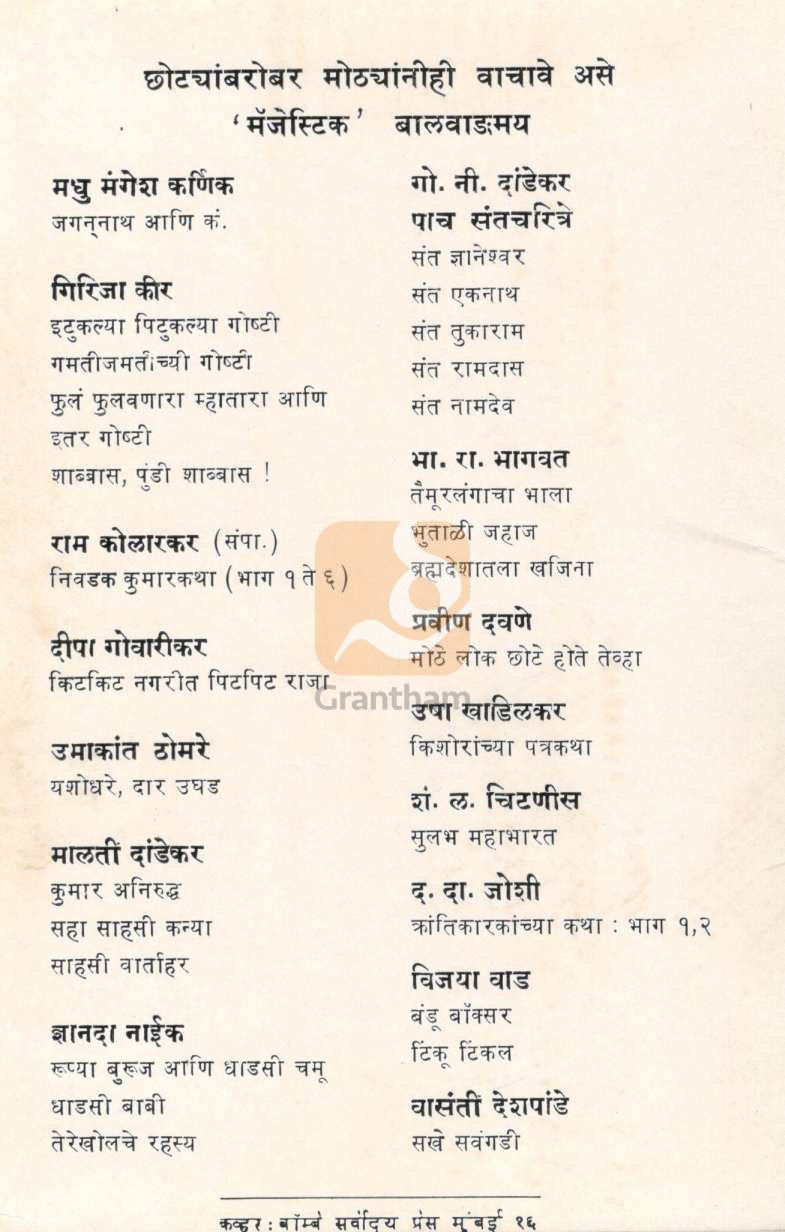 छोट्यांबरोबर मोठ्यांनीही वाचावे असे
‘मॅजेस्टिक’ बालवाङमय
मधु मंगेश कर्णिक
जगन्‌नाथ आणि कं.
गिरिजा कीर
इटुकल्या पिटुकल्या गोष्टी
गमतीजमतीच्यी गोष्टी
फुलं फुलवणारा म्हातारा आणि
इतर गोष्टी
शाब्बास, पुंडी शाब्बास !
राम कोलारकर (संपा.)
निवडक कुमारकथा (भाग १ ते ६)
दीपा गोवारीकर
किटकिट नगरीत पिटपिट राजा
उमाकांत ठोमरे
यशोधरे, दार उघड
मालती दांडेकर
कुमार अनिरुद्ध
सहा साहसी कन्या
साहसी वार्ताहर
ज्ञानदा नाईक
रूप्या बुरूज आणि धाडसी चमू
धाडसी बाबी
तेरेखोलचे रहस्य
गो. नी. दांडेकर
पाच संतचरित्रे
संत ज्ञानेश्वर
संत एकनाथ
संत तुकाराम
संत रामदास
संत नामदेव
भा. रा. भागवत
तैमूरलंगाचा भाला
भुताळी जहाज
ब्रह्मदेशातला खजिना
प्रवीण दवणे
मोठे लोक छोटे होते तेव्हा
उषा खाडिलकर
किशोरांच्या पत्रकथा
शं. ल. चिटणीस
सुलभ महाभारत
द. दा. जोशी
क्रांतिकारकांच्या कथा : भाग १,२
विजया वाड
बंडू बॉक्सर
टिंकू टिंकल
वासंती देशपांडे
सखे सवंगडी
Grantham
कव्हर : बॉम्बे सर्वोदय प्रेस मुंबई १६